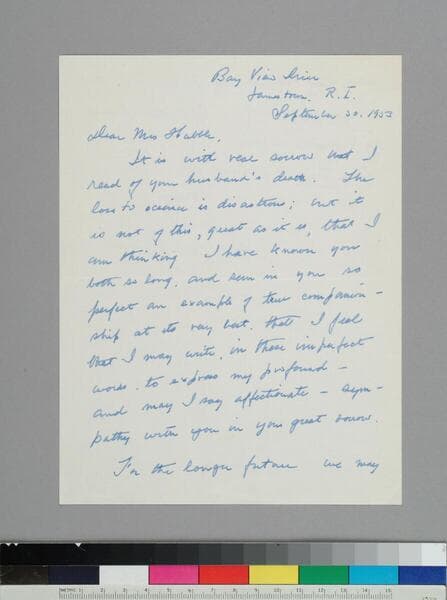 Bay View Drive
Jamestown, R. I.
September 30, 1953
Dear Mrs Hubble,
It is with real sorrow that I
read of your husband's death. The
loss to science is disastrous; but it
is not of this, great as it is, that I
am thinking. I have known you
both so long, and seen in you so
perfect an example of true companion-
ship at its very best, that I feel
that I may write, in these imperfect
words, to express my profound -
and may I say affectionate - sym-
pathy with you in your great sorrow.
For the longer future we may